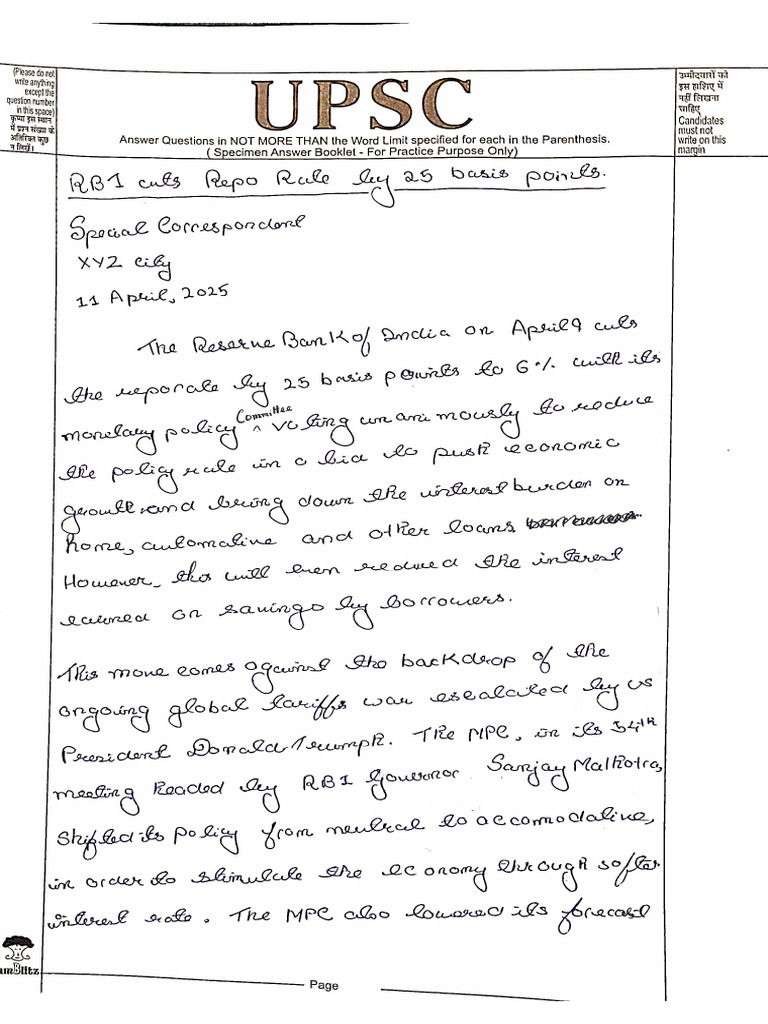 (Please do not
write anything
except the
question number
in this space)
कृपया इस स्थान
में प्रश्न संख्या के
अतिरिक्त कुछ
न लिखें।
UPSC
Answer Questions in NOT MORE THAN the Word Limit specified for each in the Parenthesis.
( Specimen Answer Booklet - For Practice Purpose Only)
उम्मीदवारों को
इस हाशिए में
नहीं लिखना
चाहिए
Candidates
must not
write on this
margin
RBI cuts Repo Rate by 25 basis points.
Special Correspondent
XYZ city
11 April, 2025
The Reserve Bank of India on April 9 cuts
the repo rate by 25 basis points to 6% with its
monetary policy Committee voting unanimously to reduce
the policy rate in a bid to push economic
growth and bring down the interest burden on
home, automative and other loans
However, this will even reduced the interest
earned on savings by borrowers.
This move comes against the backdrop of the
ongoing global tariffs war escalated by US
President Donald Trumph. The MPC, in its 54th
meeting headed by RBI Governor Sanjay Malhotra,
shifted its policy from neutral to accomodative,
in order to stimulate the economy through softer
interest rate. The MPC also lowered its forecast
amBlitz
Page